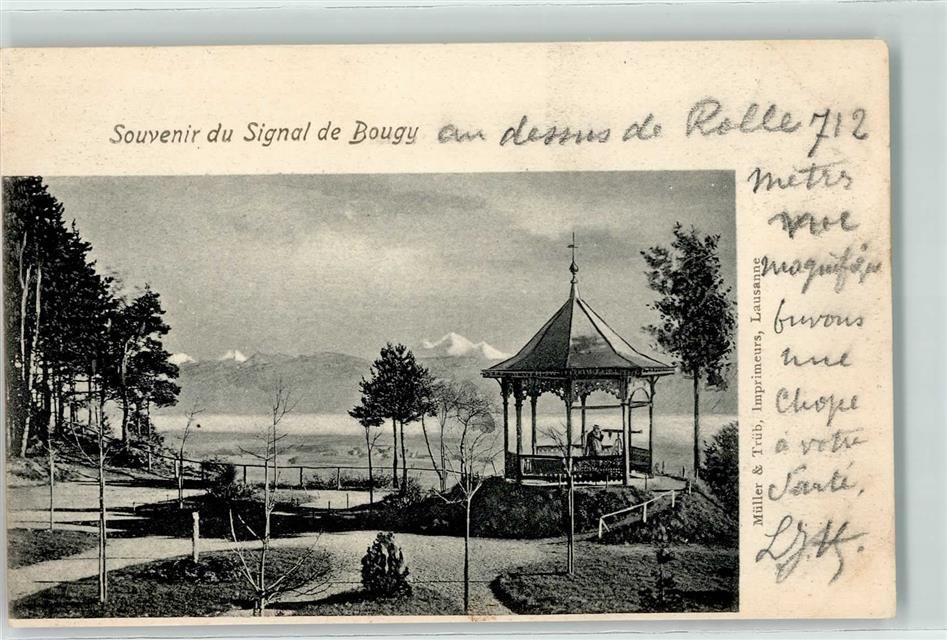 Souvenir du Signal de Bougy au dessus de Rolle 712
mètres
vue
magnifique
buvons
une
Chope
à votre
Santé,
Müller & Trüb, Imprimeurs, Lausanne